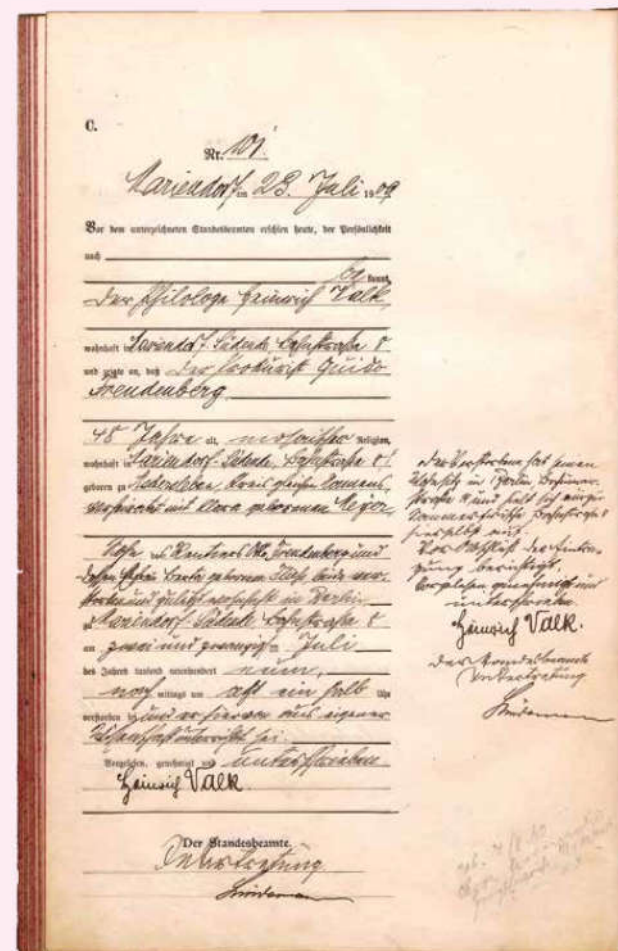 C.
Nr. 101
Mariendorf am 23. Juli 1909
Vor dem unterzeichneten Standesbeamten erschien heute, der Persönlichkeit
nach
be kannt,
der Philologe Heinrich Valk,
wohnhaft in Mariendorf-Südende, Bahnstraße 8
und zeigte an, daß der Prokurist Guido
Freudenberg
48 Jahre alt, mosaischer Religion,
wohnhaft in Mariendorf-Südende, Bahnstraße 8
geboren zu Kreis gleichen Namens,
verheiratet mit Clara geborenen Meyer,
Sohn des Rentiers Otto Freudenberg und
dessen Ehefrau Berta geborenen beide ver-
storben und zuletzt wohnhaft in Berlin
zu Mariendorf-Südende, Bahnstraße 8
am zwei und zwanzigsten Juli
des Jahres tausend neunhundert neun,
nach mittags um acht ein halb Uhr
verstorben sei und er hiervon aus eigener
Wissenschaft unterrichtet sei.
Vorgelesen, genehmigt und unterschrieben
Heinrich Valk.
Der Standesbeamte.
In Vertretung
der Verstorbene hat seinen
Wohnsitz in Berlin
straße 9 und hielt sich nur zur
Sommerfrische Bahnstraße 8
hierselbst auf.
Vor Abschluß der Eintra-
gung berichtigt.
Vorgelesen, genehmigt und
unterschrieben
Heinrich Valk.
Der Standesbeamte
In Vertretung